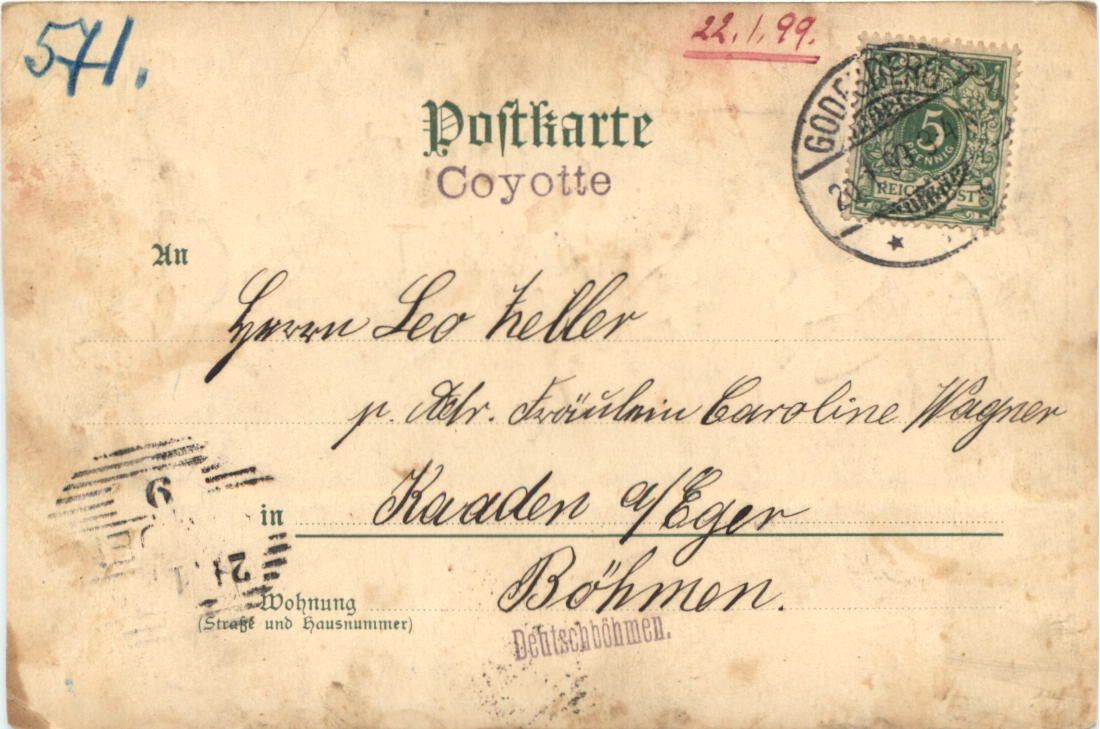 571.
22.1.99.
Postkarte
Coyotte
GODESBERG
5
PFENNIG
REICHSPOST
An
Herrn Leo Zeller
p. Adr. Fräulein Caroline Wagner
in Kaaden a/Eger
Böhmen.
Wohnung
(Straße und Hausnummer)
Deutschböhmen.